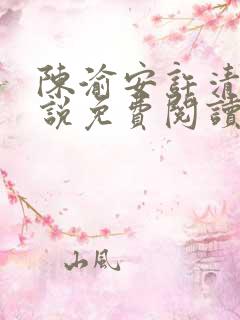 陳渝安許清
說免費閱讀
山風